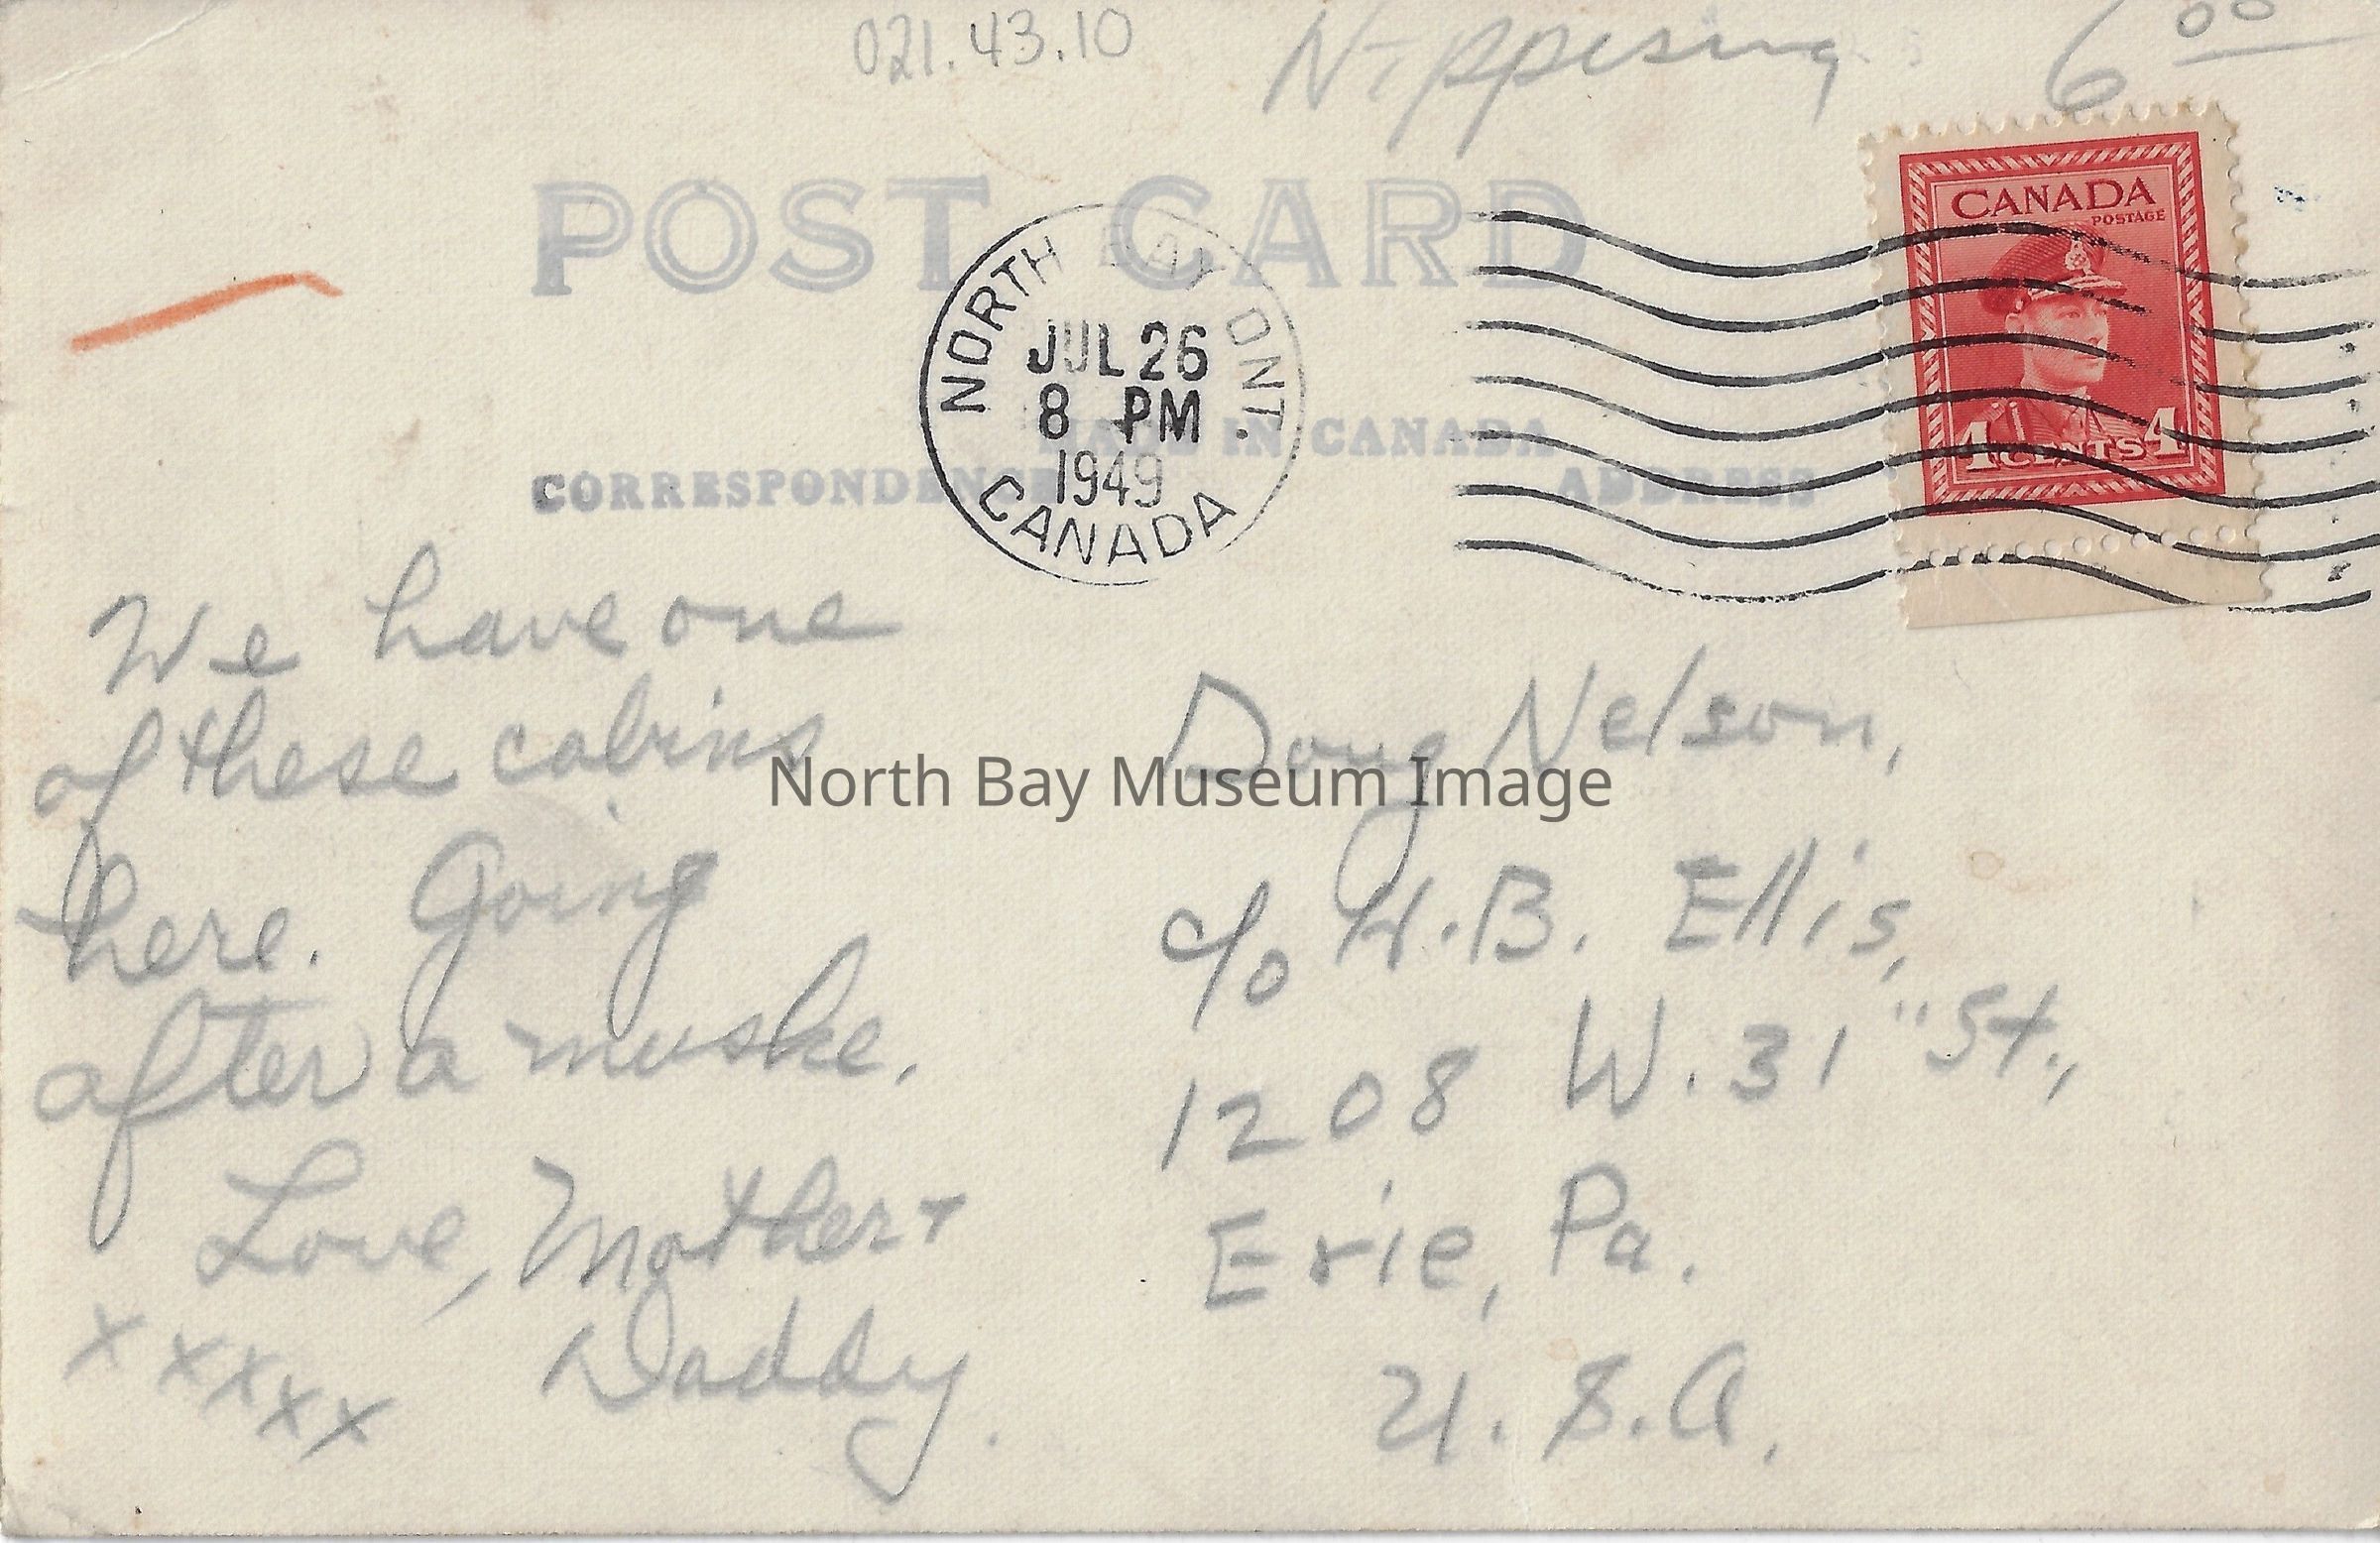 021.43.10
Nippising
6 00
POST CARD
CANADA
POSTAGE
4 CENTS 4
NORTH BAY ONT.
JUL 26
8 PM
1949
CANADA
MADE IN CANADA
CORRESPONDENCE
ADDRESS
We have one
of these cabins
here. Going
after a muske.
Love, Mother +
Daddy.
x x x x x
North Bay Museum Image
Doug Nelson,
c/o H.B. Ellis,
1208 W. 31" St.,
Erie, Pa.
U.S.A.